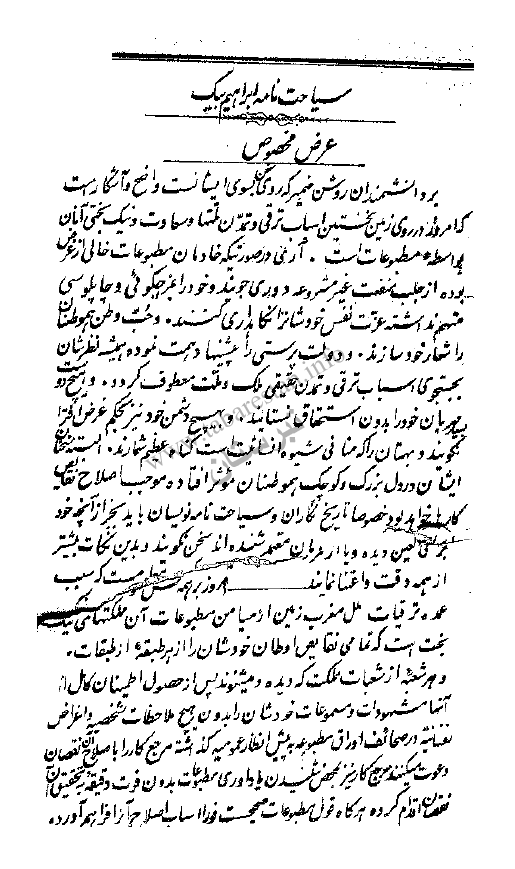 سیاحت نامه ابراهیم بیک
عرض مخصوص
بر دانشمندان روشن ضمیر که روی سخن بسوی ایشانست واضح و آشکار است
که امروز در روی زمین نخستین اسباب ترقی و تمدن ملتها و سعادت و نیک بختی آنان
بواسطهٔ مطبوعات است . آری در صورتیکه خادمان مطبوعات خالی از غرض
بوده از جلب منفعت غیر مشروعه دوری جویند و خود را بهرزه گوئی و چاپلوسی
متهم نداشته عزت نفس خودشانرا نگاهداری کنند . و حب وطن هموطنان
را شعار خود سازند . و دولت پرستی را پیشنهاد همت نموده همیشه نظرشان
بجستجوی اسباب ترقی و تمدن حقیقی ملک و ملت معطوف گردد . و هیچ دوست
مهربان خود را بدون استحقاق نستایند . و بهیچ دشمن خود نیز بحکم غرض افترا
نگویند و بهتان را که منافی شیوه انسانیت است گناه عظیم شمارند . البته سخنان
ایشان در دل بزرگ و کوچک هموطنان مؤثر افتاده موجب اصلاح نقایص
کارها خواهد بود خصوصا تاریخ نگاران و سیاحت نامه نویسان باید بجز از آنچه خود
برأی العین دیده و یا از شده اند سخن نگویند و بدین نکات بیشتر
از همه دقت و اعتنا نمایند امروز بر همه کس معلوم است که سبب
عمده ترقیات ملل مغرب زمین از میامن مطبوعات آن مملکتهای نیک
بخت است که تمامی نقایص اوطان خودشان را از هر طبقهٔ از طبقات .
و هر شعبهٔ از شعبات مملکت که دیده و میشنوند پس از حصول اطمینان کامل از
آنها مشهودات و مسموعات خودشان را بدون هیچ ملاحظات شخصیه و اغراض
نفسانیه در صحائف اوراق مطبوعه به پیش انظار عمومیه گذاشته مرجع کار را باصلاح آن نقصان
دعوت میکنند مرجع کار نیز بمحض شنیدن یادآوری مطبوعات بدون فوت دقیقه به تحقیق آن
نقصان اقدام کرده هرگاه قول مطبوعات صحیحست فورا اسباب اصلاح آنرا فراهم آورده